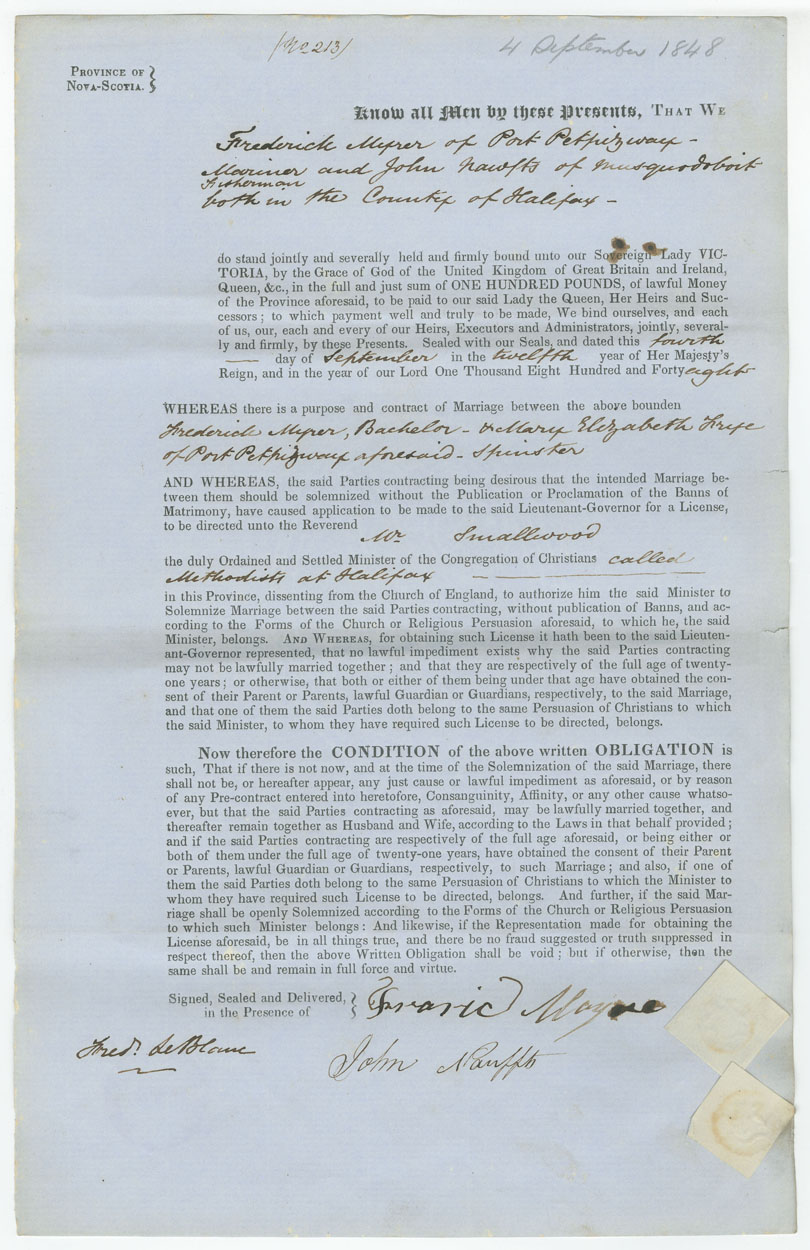 (No 213)
4 September 1848
PROVINCE OF
NOVA-SCOTIA.
Know all Men by these Presents, THAT WE
Frederick Myrer of Port Petpizway -
Mariner and John Nawfts of Musquodoboit
Fisherman
both in the County of Halifax -
do stand jointly and severally held and firmly bound unto our Sovereign Lady VIC-
TORIA, by the Grace of God of the United Kingdom of Great Britain and Ireland,
Queen, &c., in the full and just sum of ONE HUNDRED POUNDS, of lawful Money
of the Province aforesaid, to be paid to our said Lady the Queen, Her Heirs and Suc-
cessors ; to which payment well and truly to be made, We bind ourselves, and each
of us, our, each and every of our Heirs, Executors and Administrators, jointly, several-
ly and firmly, by these Presents. Sealed with our Seals, and dated this fourth
— day of September in the twelfth year of Her Majesty's
Reign, and in the year of our Lord One Thousand Eight Hundred and Forty eight
WHEREAS there is a purpose and contract of Marriage between the above bounden
Frederick Myrer, Bachelor - & Mary Elizabeth Frye
of Port Petpizway aforesaid - Spinster
AND WHEREAS, the said Parties contracting being desirous that the intended Marriage be-
tween them should be solemnized without the Publication or Proclamation of the Banns of
Matrimony, have caused application to be made to the said Lieutenant-Governor for a License,
to be directed unto the Reverend
Mr Smallwood
the duly Ordained and Settled Minister of the Congregation of Christians called
Methodists at Halifax
in this Province, dissenting from the Church of England, to authorize him the said Minister to
Solemnize Marriage between the said Parties contracting, without publication of Banns, and ac-
cording to the Forms of the Church or Religious Persuasion aforesaid, to which he, the said
Minister, belongs. AND WHEREAS, for obtaining such License it hath been to the said Lieuten-
ant-Governor represented, that no lawful impediment exists why the said Parties contracting
may not be lawfully married together ; and that they are respectively of the full age of twenty-
one years ; or otherwise, that both or either of them being under that age have obtained the con-
sent of their Parent or Parents, lawful Guardian or Guardians, respectively, to the said Marriage,
and that one of them the said Parties doth belong to the same Persuasion of Christians to which
the said Minister, to whom they have required such License to be directed, belongs.
Now therefore the CONDITION of the above written OBLIGATION is
such, That if there is not now, and at the time of the Solemnization of the said Marriage, there
shall not be, or hereafter appear, any just cause or lawful impediment as aforesaid, or by reason
of any Pre-contract entered into heretofore, Consanguinity, Affinity, or any other cause whatso-
ever, but that the said Parties contracting as aforesaid, may be lawfully married together, and
thereafter remain together as Husband and Wife, according to the Laws in that behalf provided ;
and if the said Parties contracting are respectively of the full age aforesaid, or being either or
both of them under the full age of twenty-one years, have obtained the consent of their Parent
or Parents, lawful Guardian or Guardians, respectively, to such Marriage ; and also, if one of
them the said Parties doth belong to the same Persuasion of Christians to which the Minister to
whom they have required such License to be directed, belongs. And further, if the said Mar-
riage shall be openly Solemnized according to the Forms of the Church or Religious Persuasion
to which such Minister belongs : And likewise, if the Representation made for obtaining the
License aforesaid, be in all things true, and there be no fraud suggested or truth suppressed in
respect thereof, then the above Written Obligation shall be void ; but if otherwise, then the
same shall be and remain in full force and virtue.
Signed, Sealed and Delivered,
in the Presence of
Fredk. LeBlanc
John Nauffts